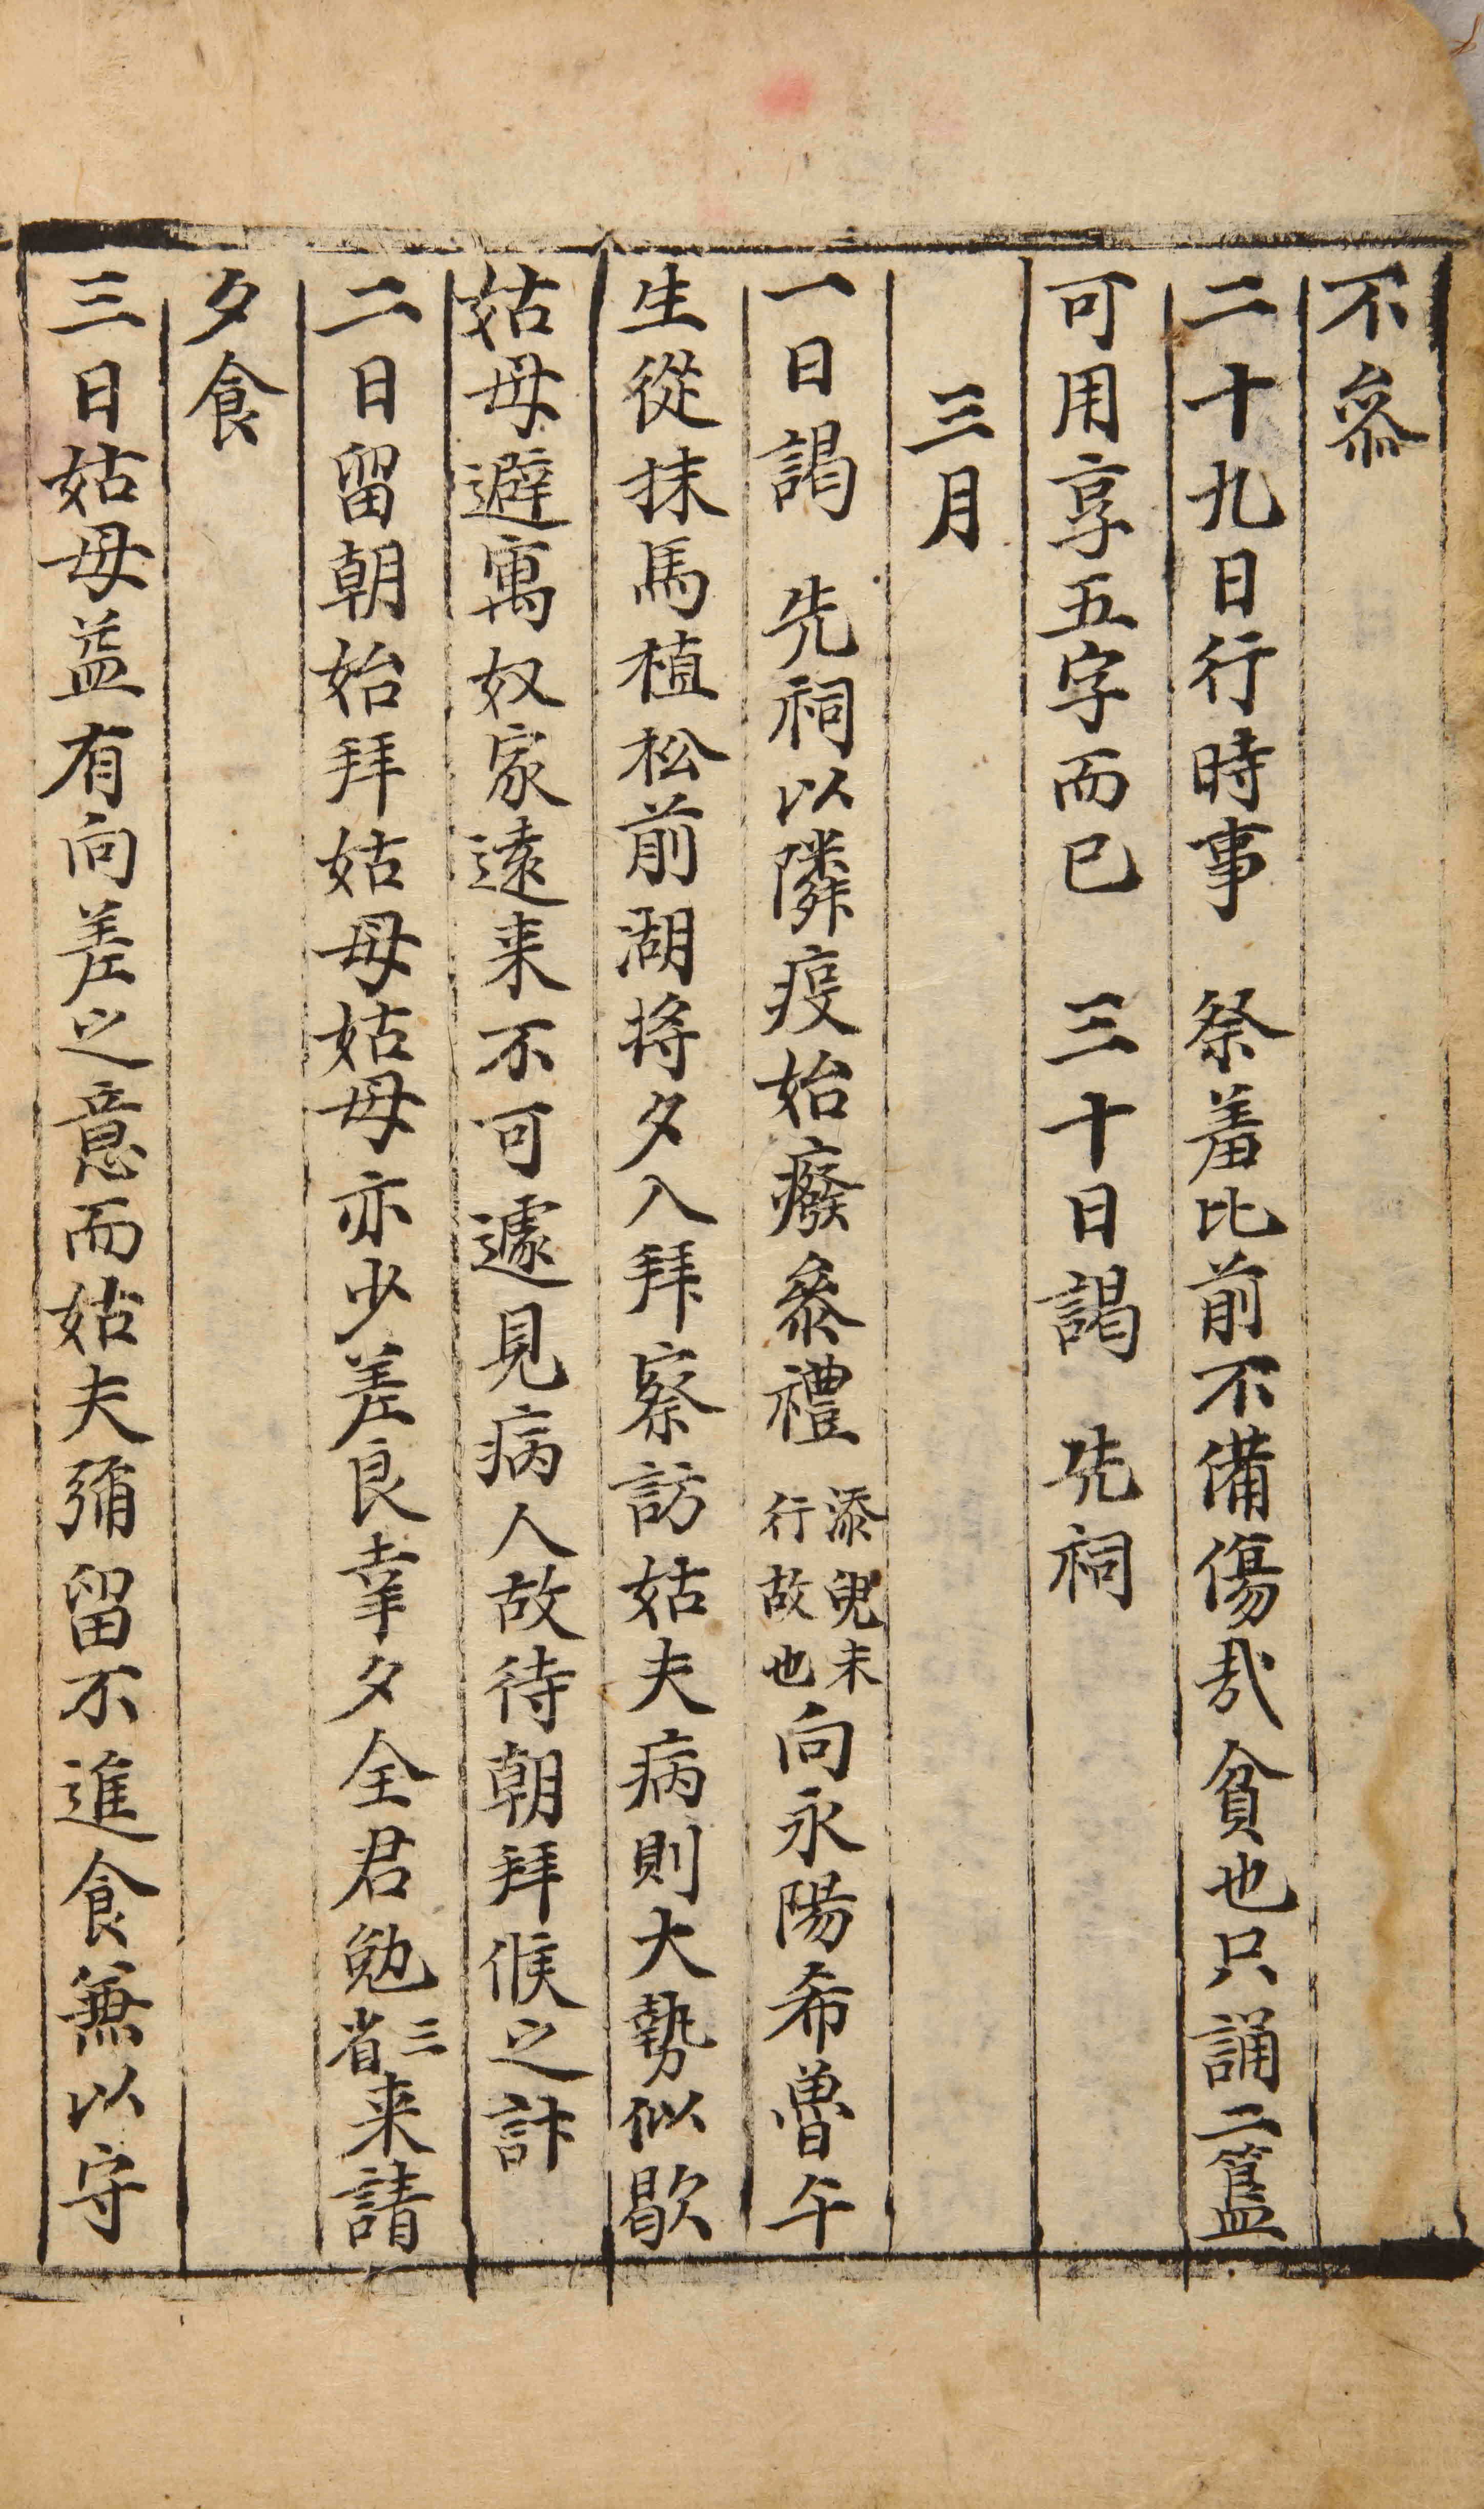 不叅
二十九日行時事 祭羞比前不備傷㢤貧也只誦二簋
可用享五字而已 三十日謁 先祠
三月
一日謁 先祠以隣疫始癈叅禮添兒未行故也向永陽希魯午
生從抹馬植松前湖将夕入拜察訪姑夫病則大勢似歇
姑母避寓奴家遠来不可遽見病人故待朝拜候之計
二日留朝始拜姑母姑母亦少差良幸夕全君勉三省来請
夕食
三日姑母益有向差之意而姑夫彌留不進食無以守